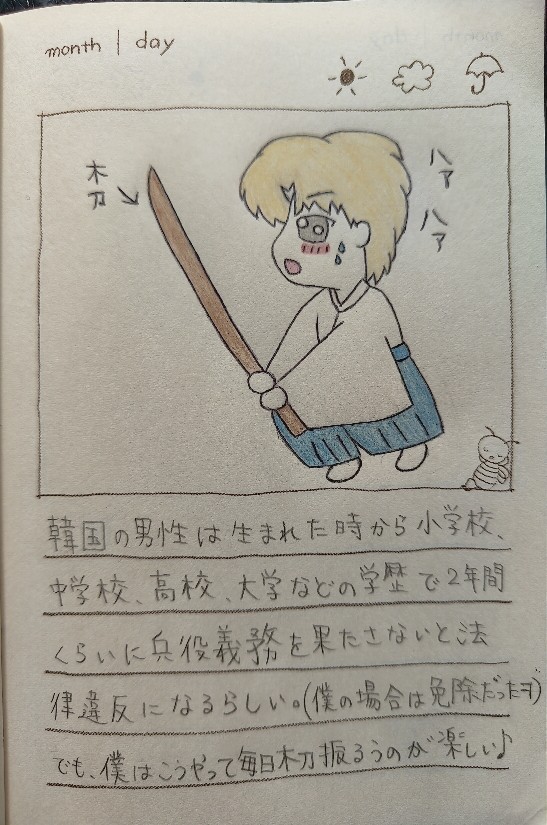 month | day
木刀
ハァ
ハァ
韓国の男性は生まれた時から小学校、
中学校、高校、大学などの学歴で2年間
くらいに兵役義務を果たさないと法
律違反になるらしい。(僕の場合は免除だったヲ)
でも、僕はこうやって毎日木刀振るうのが楽しい♪